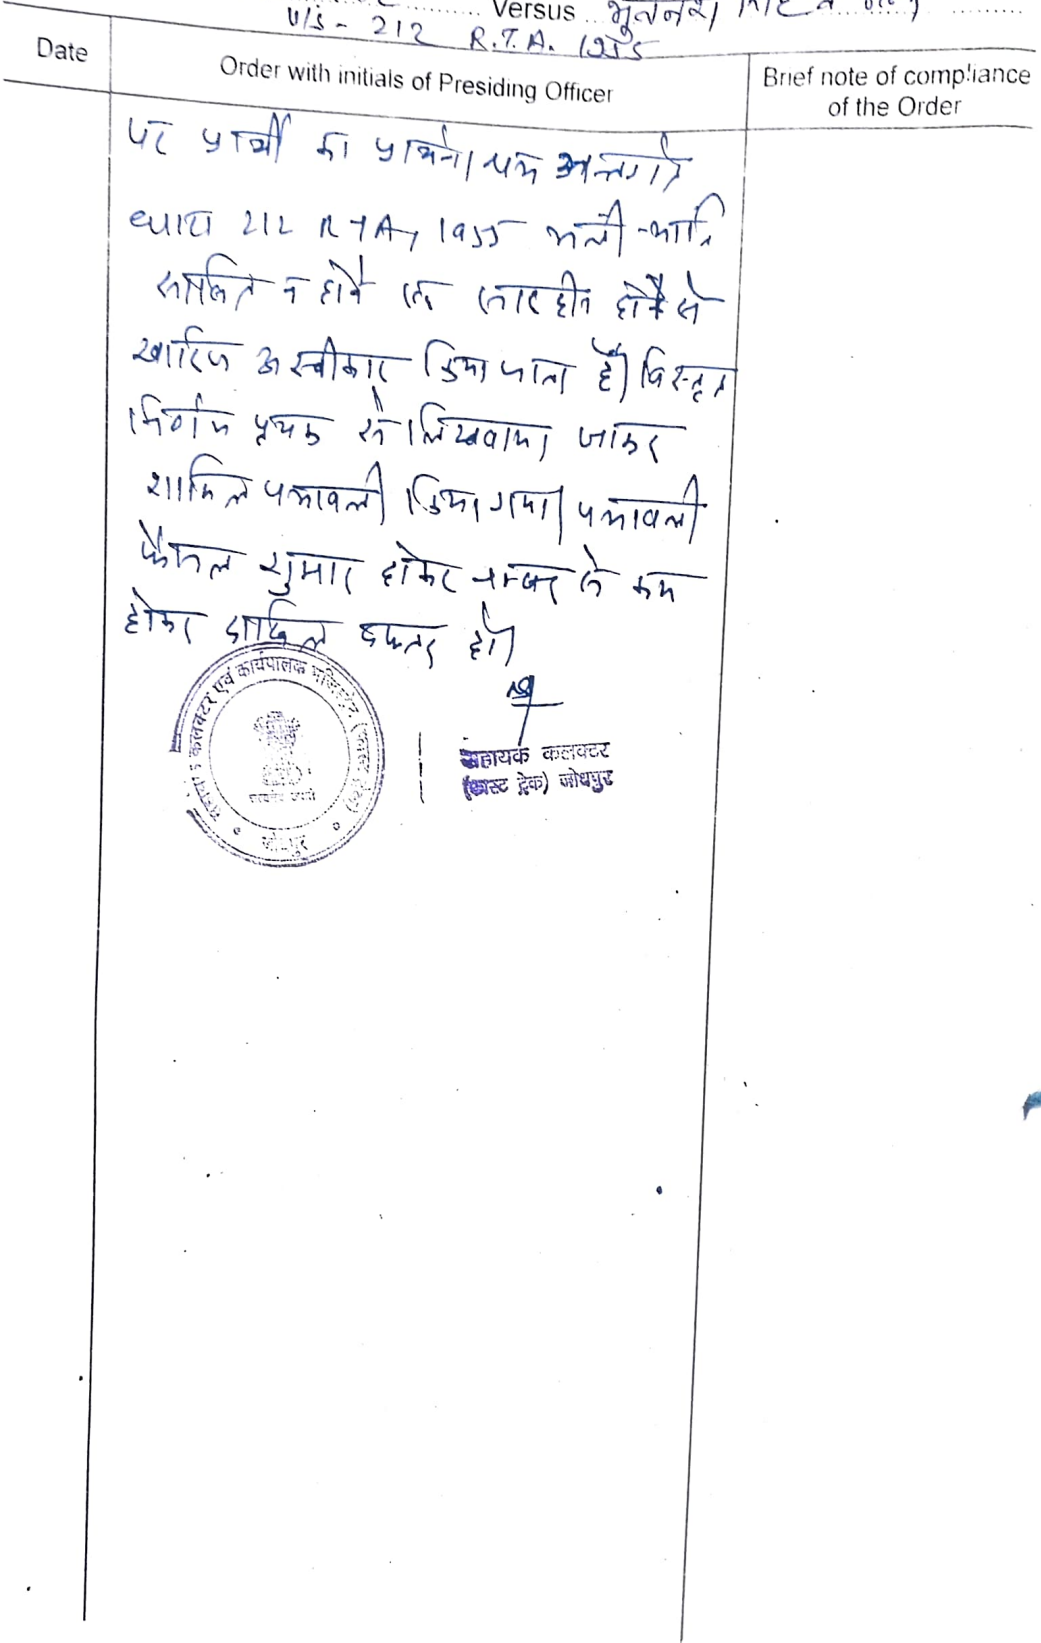 Versus
U/S - 212 R.T.A. 1955
Date
Order with initials of Presiding Officer
Brief note of compliance
of the Order
पर प्रार्थी का प्रार्थना पत्र अन्तर्गत
धारा 212 R T A, 1955 भली-भांति
साबित न होने एवं सारहीन होने से
खारिज अस्वीकार किया जाता है। विस्तृत
निर्णय पृथक से लिखवाया जाकर
शामिल पत्रावली किया गया। पत्रावली
फैसल शुमार होकर नम्बर से कम
होकर दाखिल दफ्तर हो।
सहायक कलक्टर एवं कार्यपालक मजिस्ट्रेट (फास्ट ट्रेक)
जोधपुर
सहायक कलक्टर
(फास्ट ट्रेक) जोधपुर